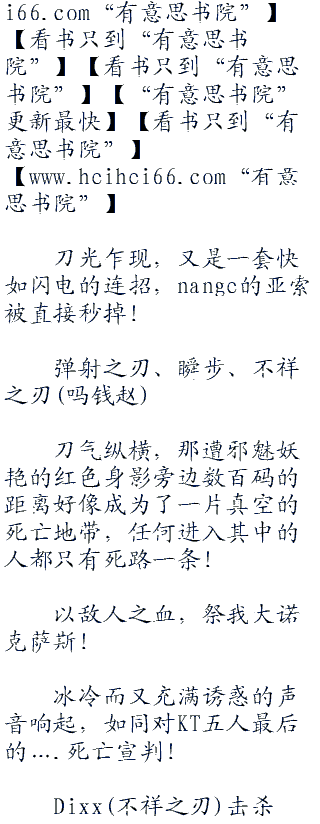 i66.com“有意思书院”】
【看书只到“有意思书
院”】【看书只到“有意思
书院”】【“有意思书院”
更新最快】【看书只到“有
意思书院”】
【www.hcihci66.com“有意
思书院”】
刀光乍现，又是一套快
如闪电的连招，nangc的亚索
被直接秒掉！
弹射之刃、瞬步、不祥
之刃(吗钱赵)
刀气纵横，那遭邪魅妖
艳的红色身影旁边数百码的
距离好像成为了一片真空的
死亡地带，任何进入其中的
人都只有死路一条！
以敌人之血，祭我大诺
克萨斯！
冰冷而又充满诱惑的声
音响起，如同对KT五人最后
的….死亡宣判！
Dixx(不祥之刃)击杀